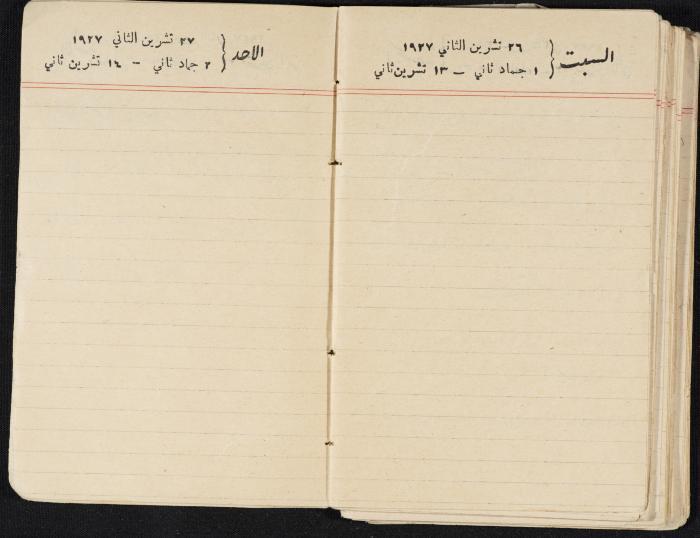 السبت
٢٦ تشرين الثاني ١٩٢٧
١ جماد ثاني – ١٣ تشرين ثاني
الاحد
٢٧ تشرين الثاني ١٩٢٧
٢ جماد ثاني – ١٤ تشرين ثاني